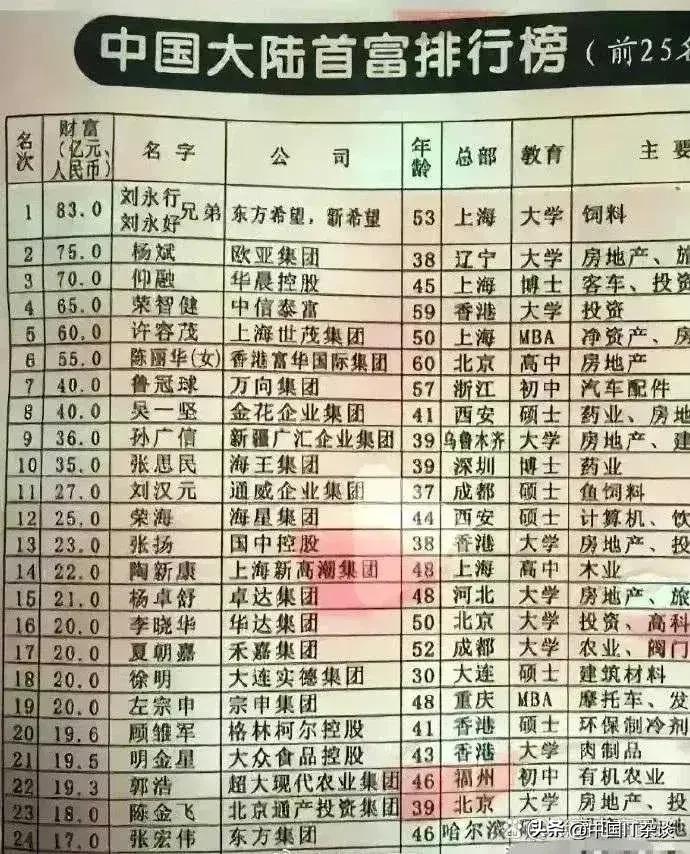 中国大陆首富排行榜(前25名
名次 财富(亿元、人民币) 名字 公司 年龄 总部 教育 主要
1 83.0 刘永行 刘永好 兄弟 东方希望,新希望 53 上海 大学 饲料
2 75.0 杨斌 欧亚集团 38 辽宁 大学 房地产、旅
3 70.0 仰融 华晨控股 45 上海 博士 客车、投资
4 65.0 荣智健 中信泰富 59 香港 大学 投资
5 60.0 许容茂 上海世茂集团 50 上海 MBA 净资产、房
6 55.0 陈丽华(女) 香港富华国际集团 60 北京 高中 房地产
7 40.0 鲁冠球 万向集团 57 浙江 初中 汽车配件
8 40.0 吴一坚 金花企业集团 41 西安 硕士 药业、房地
9 36.0 孙广信 新疆广汇企业集团 39 乌鲁木齐 大学 房地产、建
10 35.0 张思民 海王集团 39 深圳 博士 药业
11 27.0 刘汉元 通威企业集团 37 成都 硕士 鱼饲料
12 25.0 荣海 海星集团 44 西安 硕士 计算机、饮
13 23.0 张扬 国中控股 38 香港 大学 房地产、投
14 22.0 陶新康 上海新高潮集团 48 上海 高中 木业
15 21.0 杨卓舒 卓达集团 48 河北 大学 房地产、旅
16 20.0 李晓华 华达集团 50 北京 大学 投资、高科
17 20.0 夏朝嘉 禾嘉集团 52 成都 大学 农业、阀门
18 20.0 徐明 大连实德集团 30 大连 硕士 建筑材料
19 20.0 左宗申 宗申集团 48 重庆 MBA 摩托车、发
20 19.6 顾雏军 格林柯尔控股 41 香港 硕士 环保制冷剂
21 19.5 明金星 大众食品控股 43 香港 大学 肉制品
22 19.3 郭浩 超大现代农业集团 46 福州 初中 有机农业
23 18.0 陈金飞 北京通产投资集团 39 北京 大学 房地产、投
24 17.0 张宏伟 东方集团 46 哈尔滨
头条 @中国IT杂谈